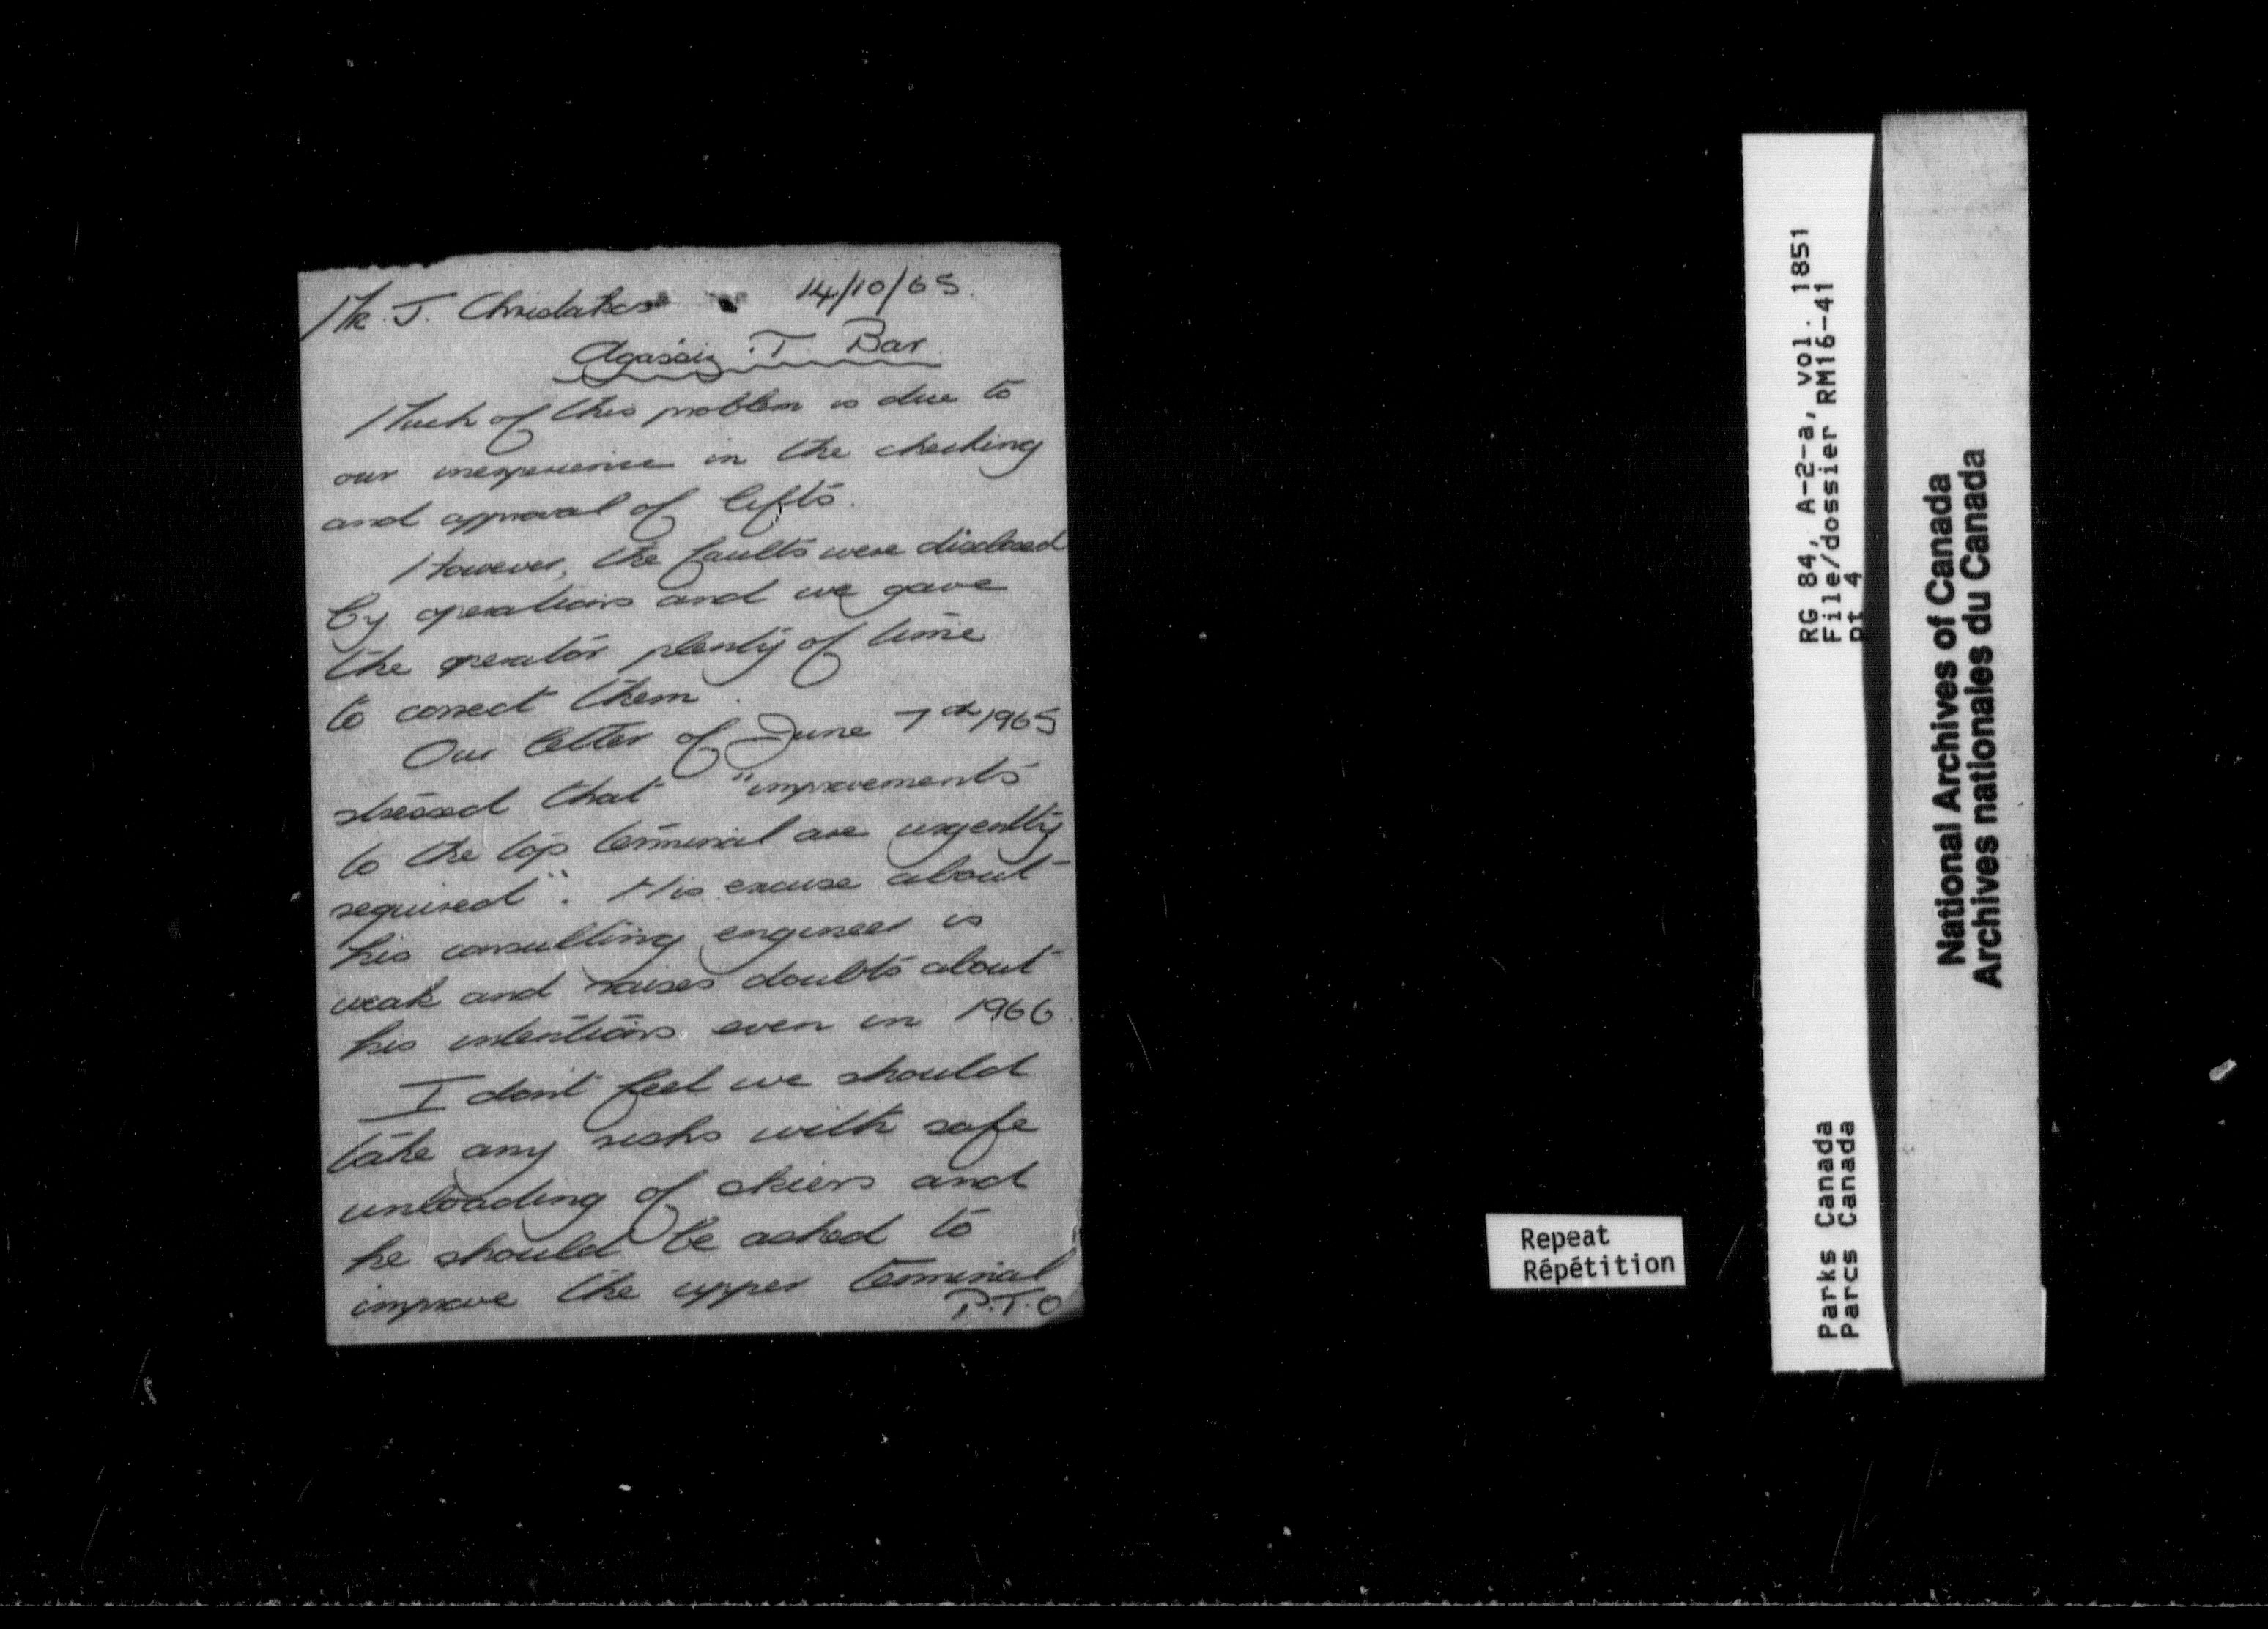 Mr. J. 14/10/65.
Agassiz T. Bar
Much of this problem is due to
our inexperience in the checking
and approval of lifts.
However, the faults were disclosed
by operations and we gave
the operator plenty of time
to correct them.
Our letter of June 7th 1965
stressed that "improvements
to the top terminal are urgently
required". His excuse about
his consulting engineer is
weak and raises doubts about
his intentions even in 1966.
I don't feel we should
take any risks with safe
unloading of skiers and
he should be asked to
improve the upper terminal
P.T.O
Repeat
Répétition
RG 84, A-2-a, vol. 1851
File/dossier RM16-41
pt 4
Parks Canada
Parcs Canada
National Archives of Canada
Archives nationales du Canada